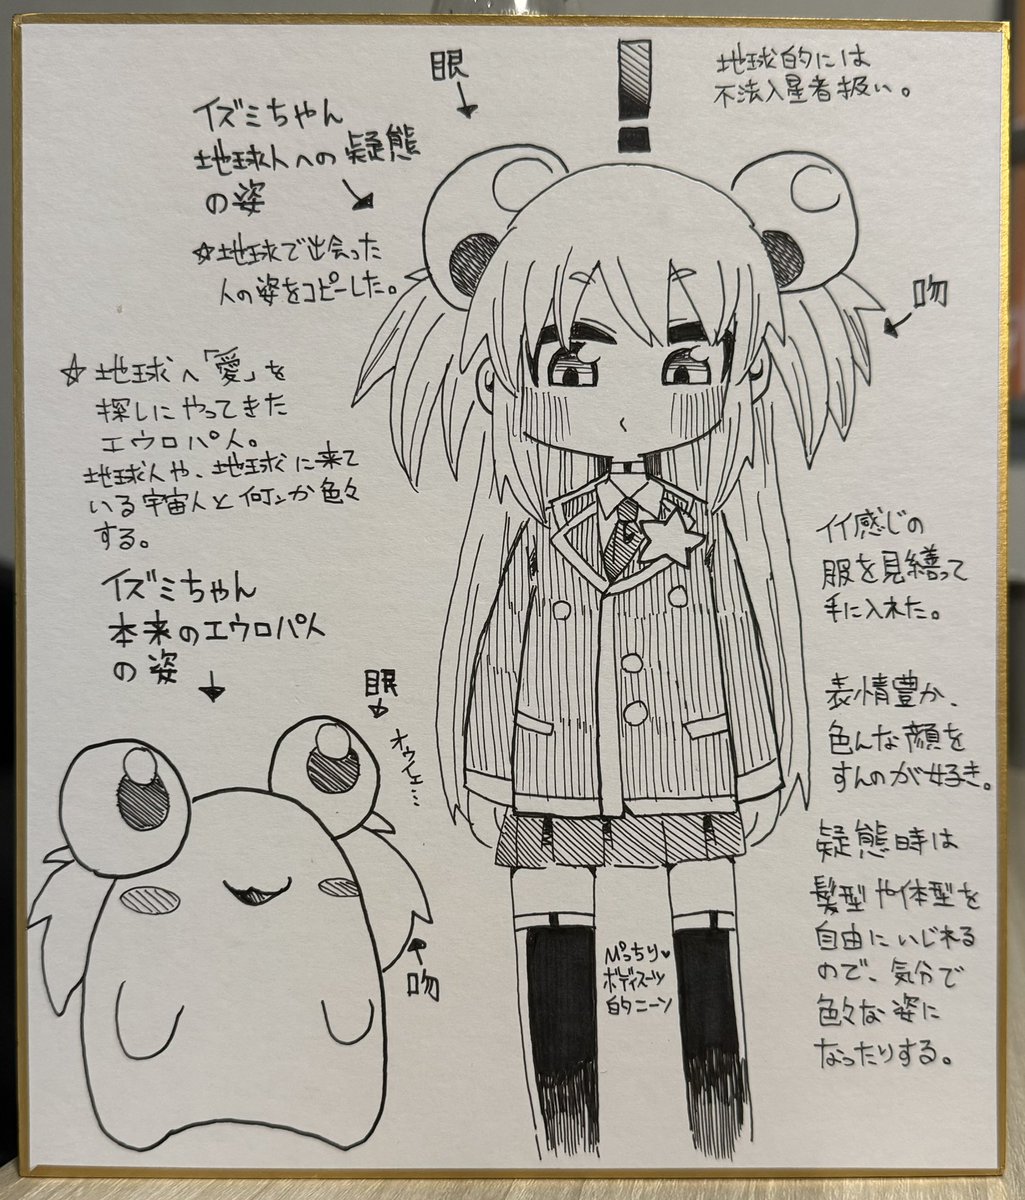 眼
イズミちゃん
地球人への疑態
の姿
☆地球で出会った
人の姿をコピーした。
!
地球的には
不法入星者扱い。
吻
☆地球へ「愛」を
探しにやってきた
エウロパ人。
地球人や、地球に来て
いる宇宙人と何ンか色々
する。
イズミちゃん
本来のエウロパ人
の姿
眼
オウイェ…
吻
イイ感じの
服を見繕って
手に入れた。
表情豊か、
色んな顔を
すんのが好き。
疑態時は
髪型や体型を
自由にいじれる
ので、気分で
色々な姿に
なったりする。
ぴっちり♥
ボディスーツ
的タニーソ